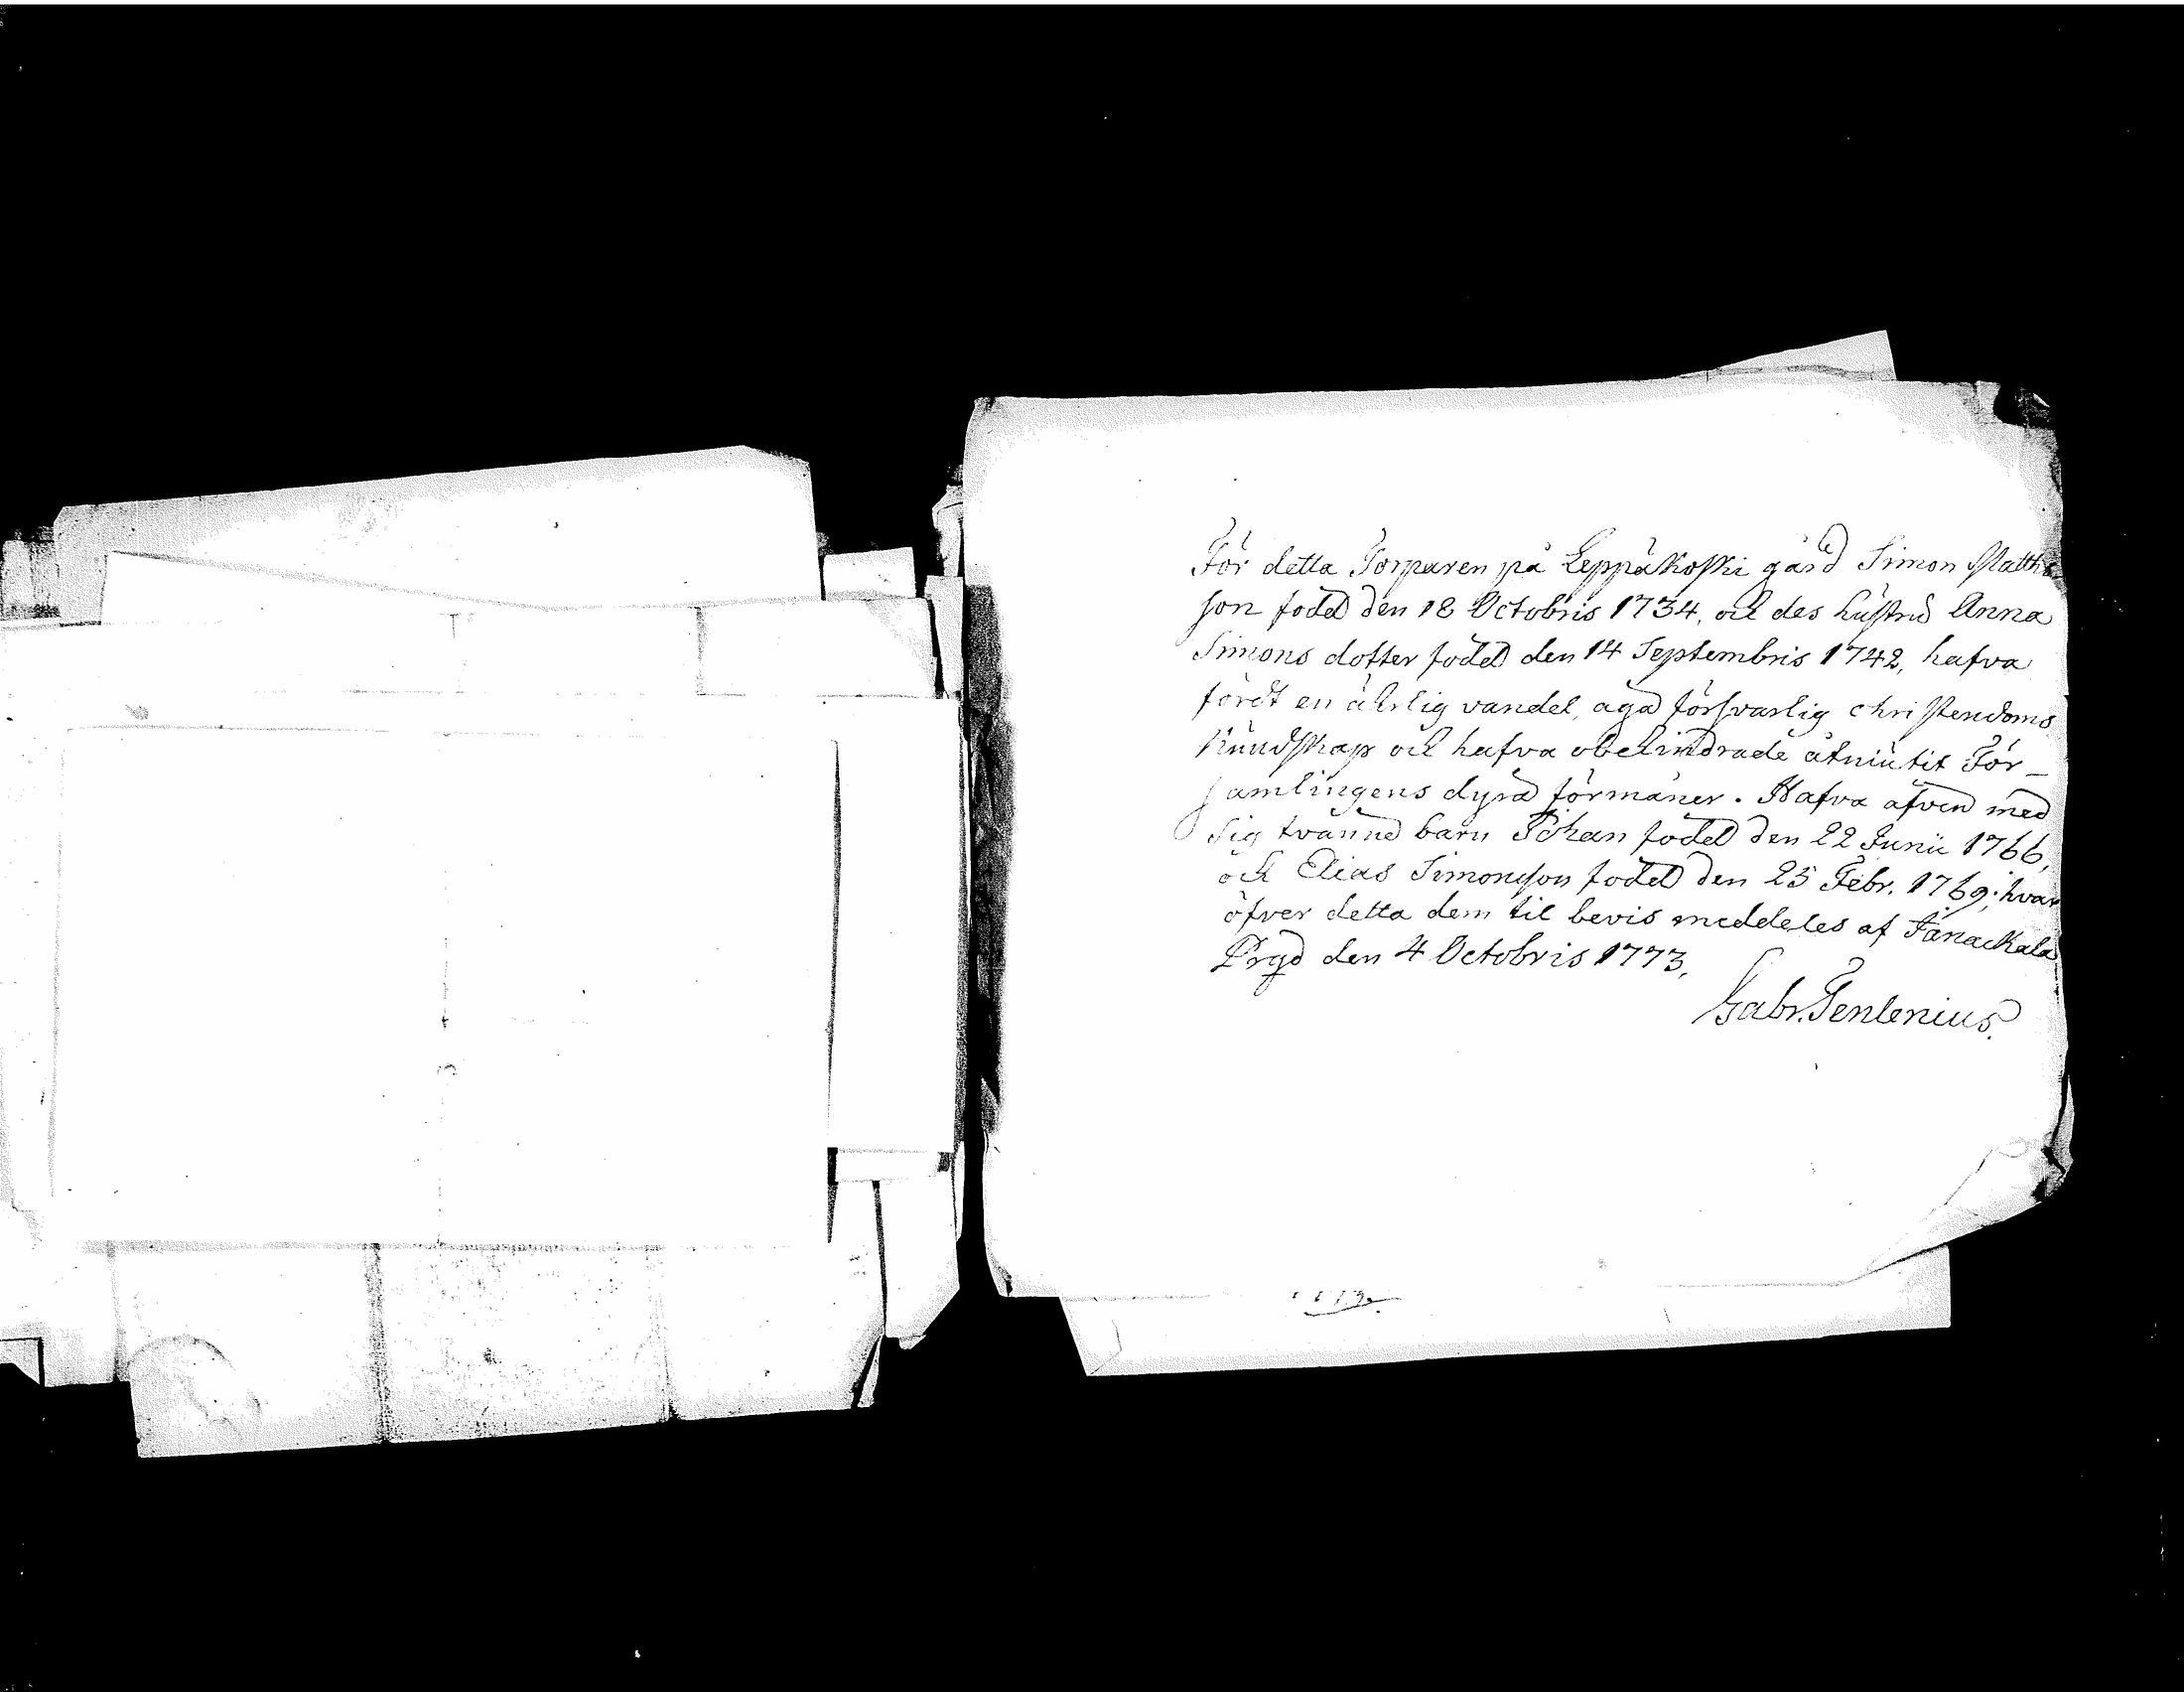 För detta Torparen på Leppäkoski gård Simon Matths
son född den 18 Octobris 1734, och des hustru Anna
Simons dotter född den 14 Septembris 1742, hafva
fördt en ährlig vandel, äga försvarlig christendoms
kundskap och hafva obehindrade åtniutit För_
samlingens dyra förmåner. Hafva äfven med
sig tvänne barn Johan född den 22 Junii 1766,
och Elias Simonsson född den 25 Febr. 1769; hvar
öfver detta dem til bevis meddeles af Janackala
Prgd den 4 Octobris 1773,
Gabr. Tenlenius.